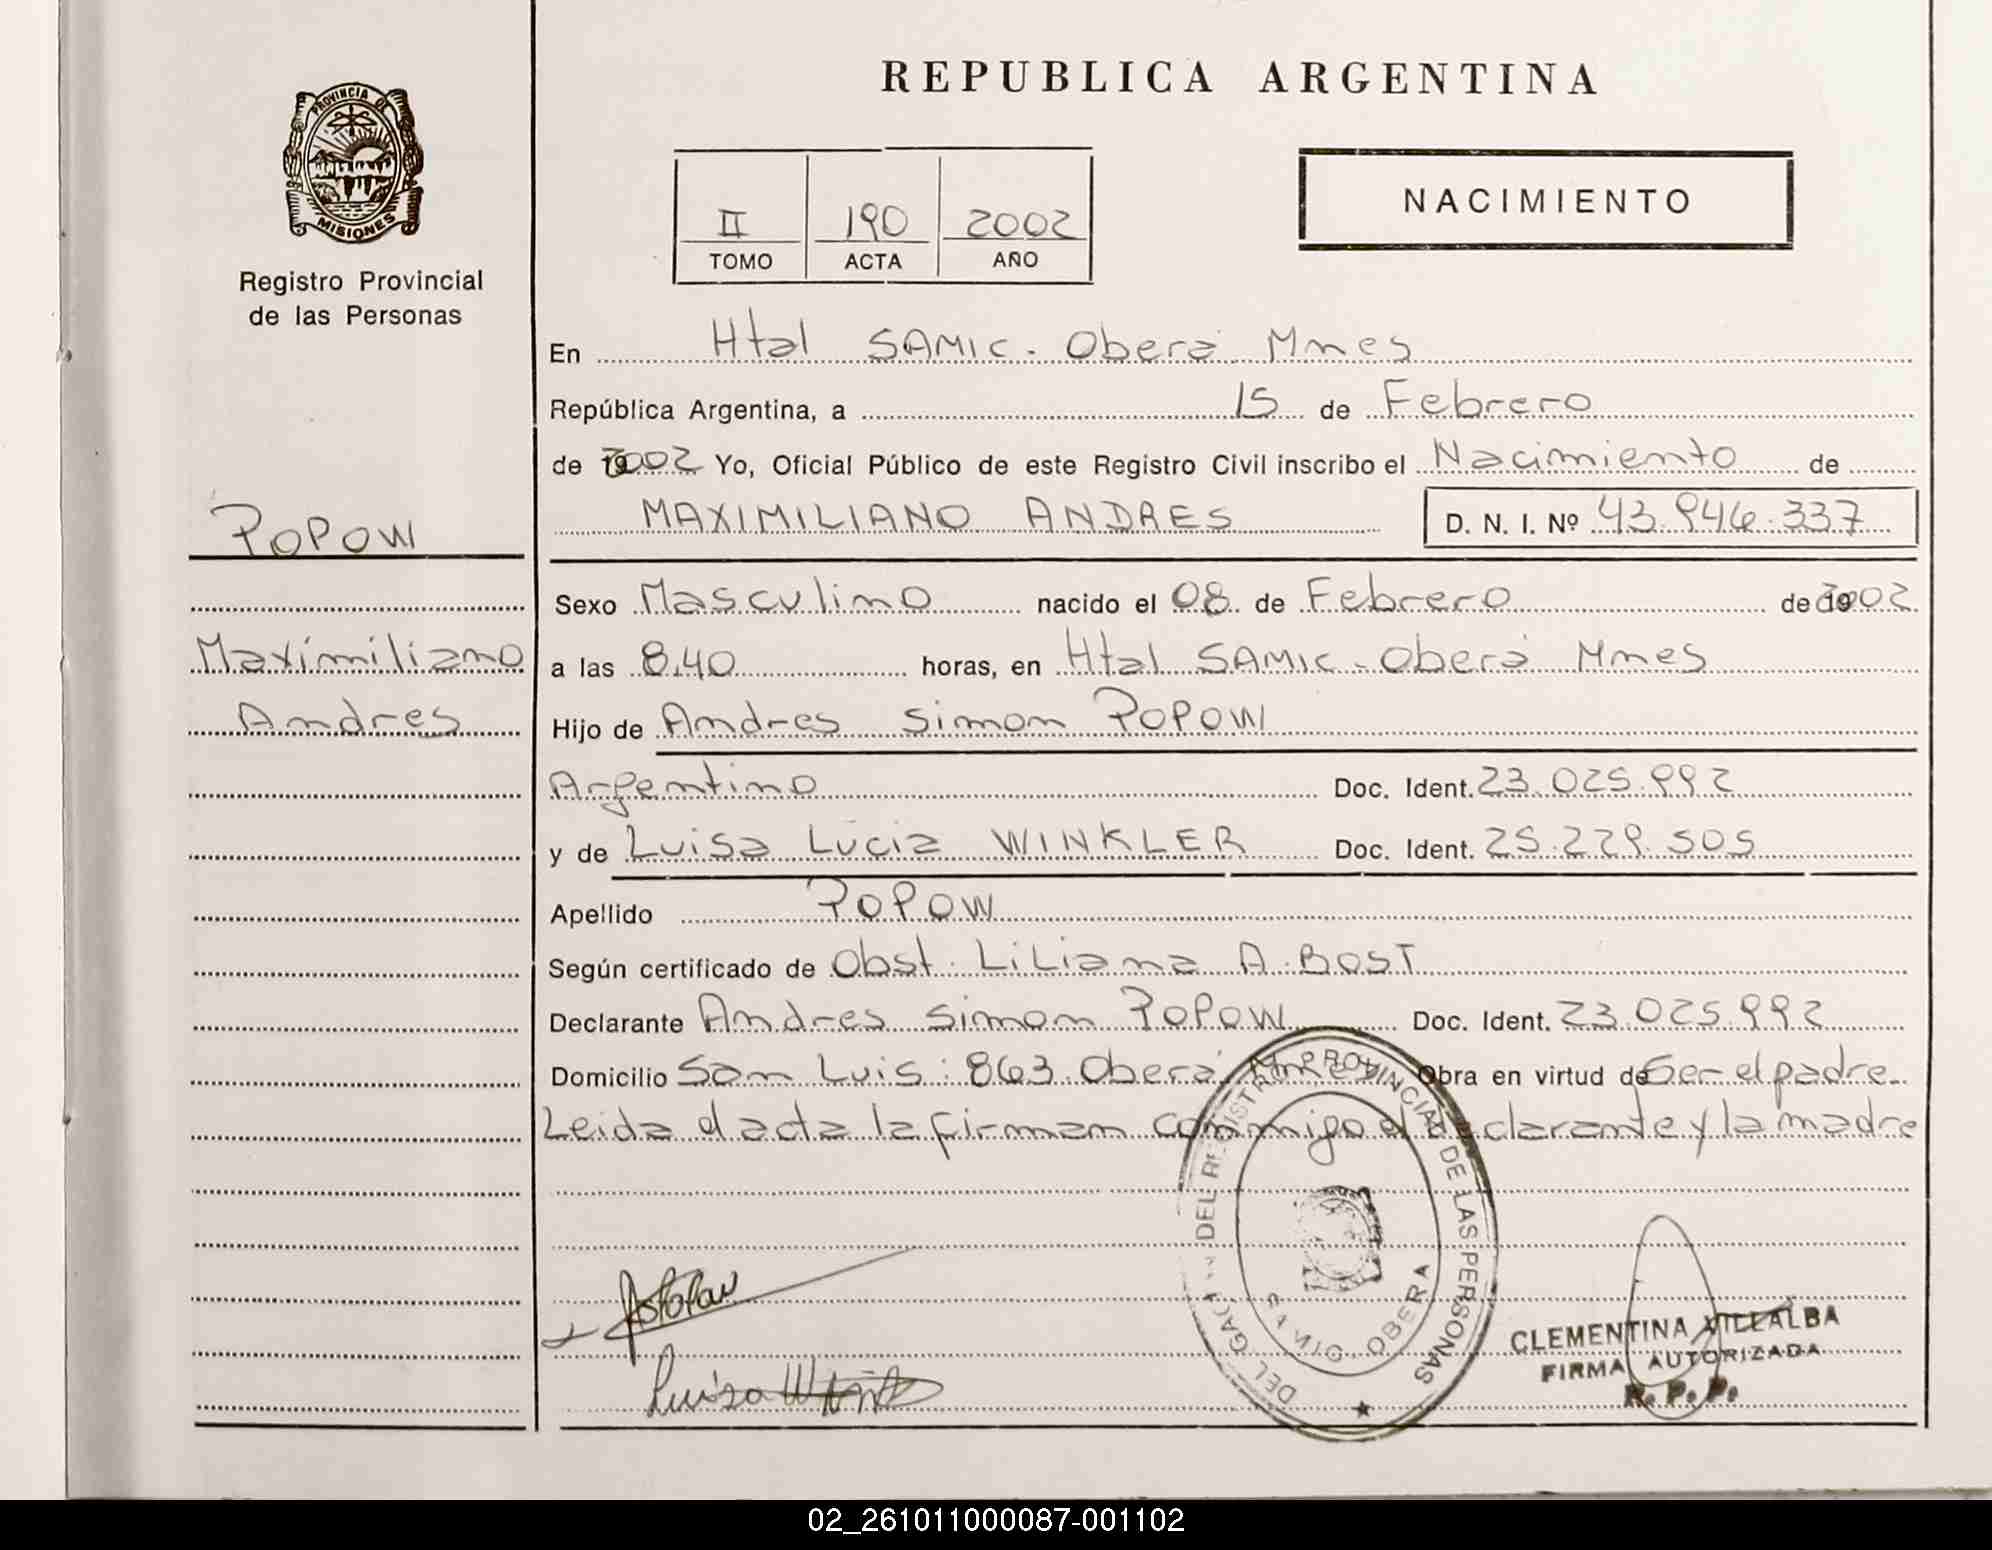 REPUBLICA ARGENTINA
PROVINCIA DE
MISIONES
Registro Provincial
de las Personas
II 190 2002
TOMO ACTA AÑO
NACIMIENTO
En Htal SAMIC. Oberá Mnes
República Argentina, a 15 de Febrero
de 2002 Yo, Oficial Público de este Registro Civil inscribo el Nacimiento de
MAXIMILIANO ANDRES D. N. I. Nº 43.946.337
POPOW
Maximiliano
Andres
Sexo Masculino nacido el 08 de Febrero de 2002
a las 8.40 horas, en Htal SAMIC. Oberá Mnes
Hijo de Andres Simon POPOW
Argentino Doc. Ident. 23.025.992
y de Luisa Lucia WINKLER Doc. Ident. 25.229.505
Apellido POPOW
Según certificado de Obst. Liliana A. BOST
Declarante Andres Simon POPOW Doc. Ident. 23.025.992
Domicilio San Luis: 863 Oberá Mnes Obra en virtud de Ser el padre
Leida el acta la firman conmigo el declarante y la madre
DEL REGISTRO PROVINCIAL DE LAS PERSONAS
OBERA
ASPopow
Luisa
CLEMENTINA VILLALBA
FIRMA AUTORIZADA
R. P. P.
02_261011000087-001102